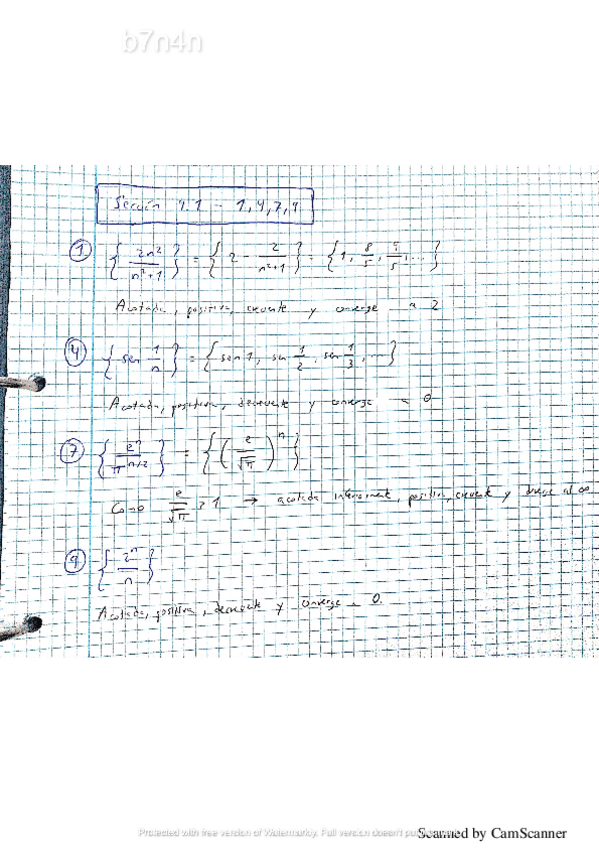 b7n4n
Sección 9.1 - 1,4,7,9
① { 2n² / n²+1 } = { 2 - 2 / n²+1 } = { 1, 8/5, 9/5, ... }
Acotada, positiva, creciente y converge a 2
④ { sen 1/n } = { sen 1, sen 1/2, sen 1/3, ... }
Acotada, positiva, decreciente y converge a 0
⑦ { eⁿ / π^(n/2) } = { ( e / √π )ⁿ }
Como e/√π > 1 → acotada inferiorment, positiva, creciente y diverge al ∞
⑨ { 2ⁿ / n }
Acotada, positiva, decreciente y converge a 0.
Protected with free version of Watermarkly. Full version doesn't put
Scanned by CamScanner